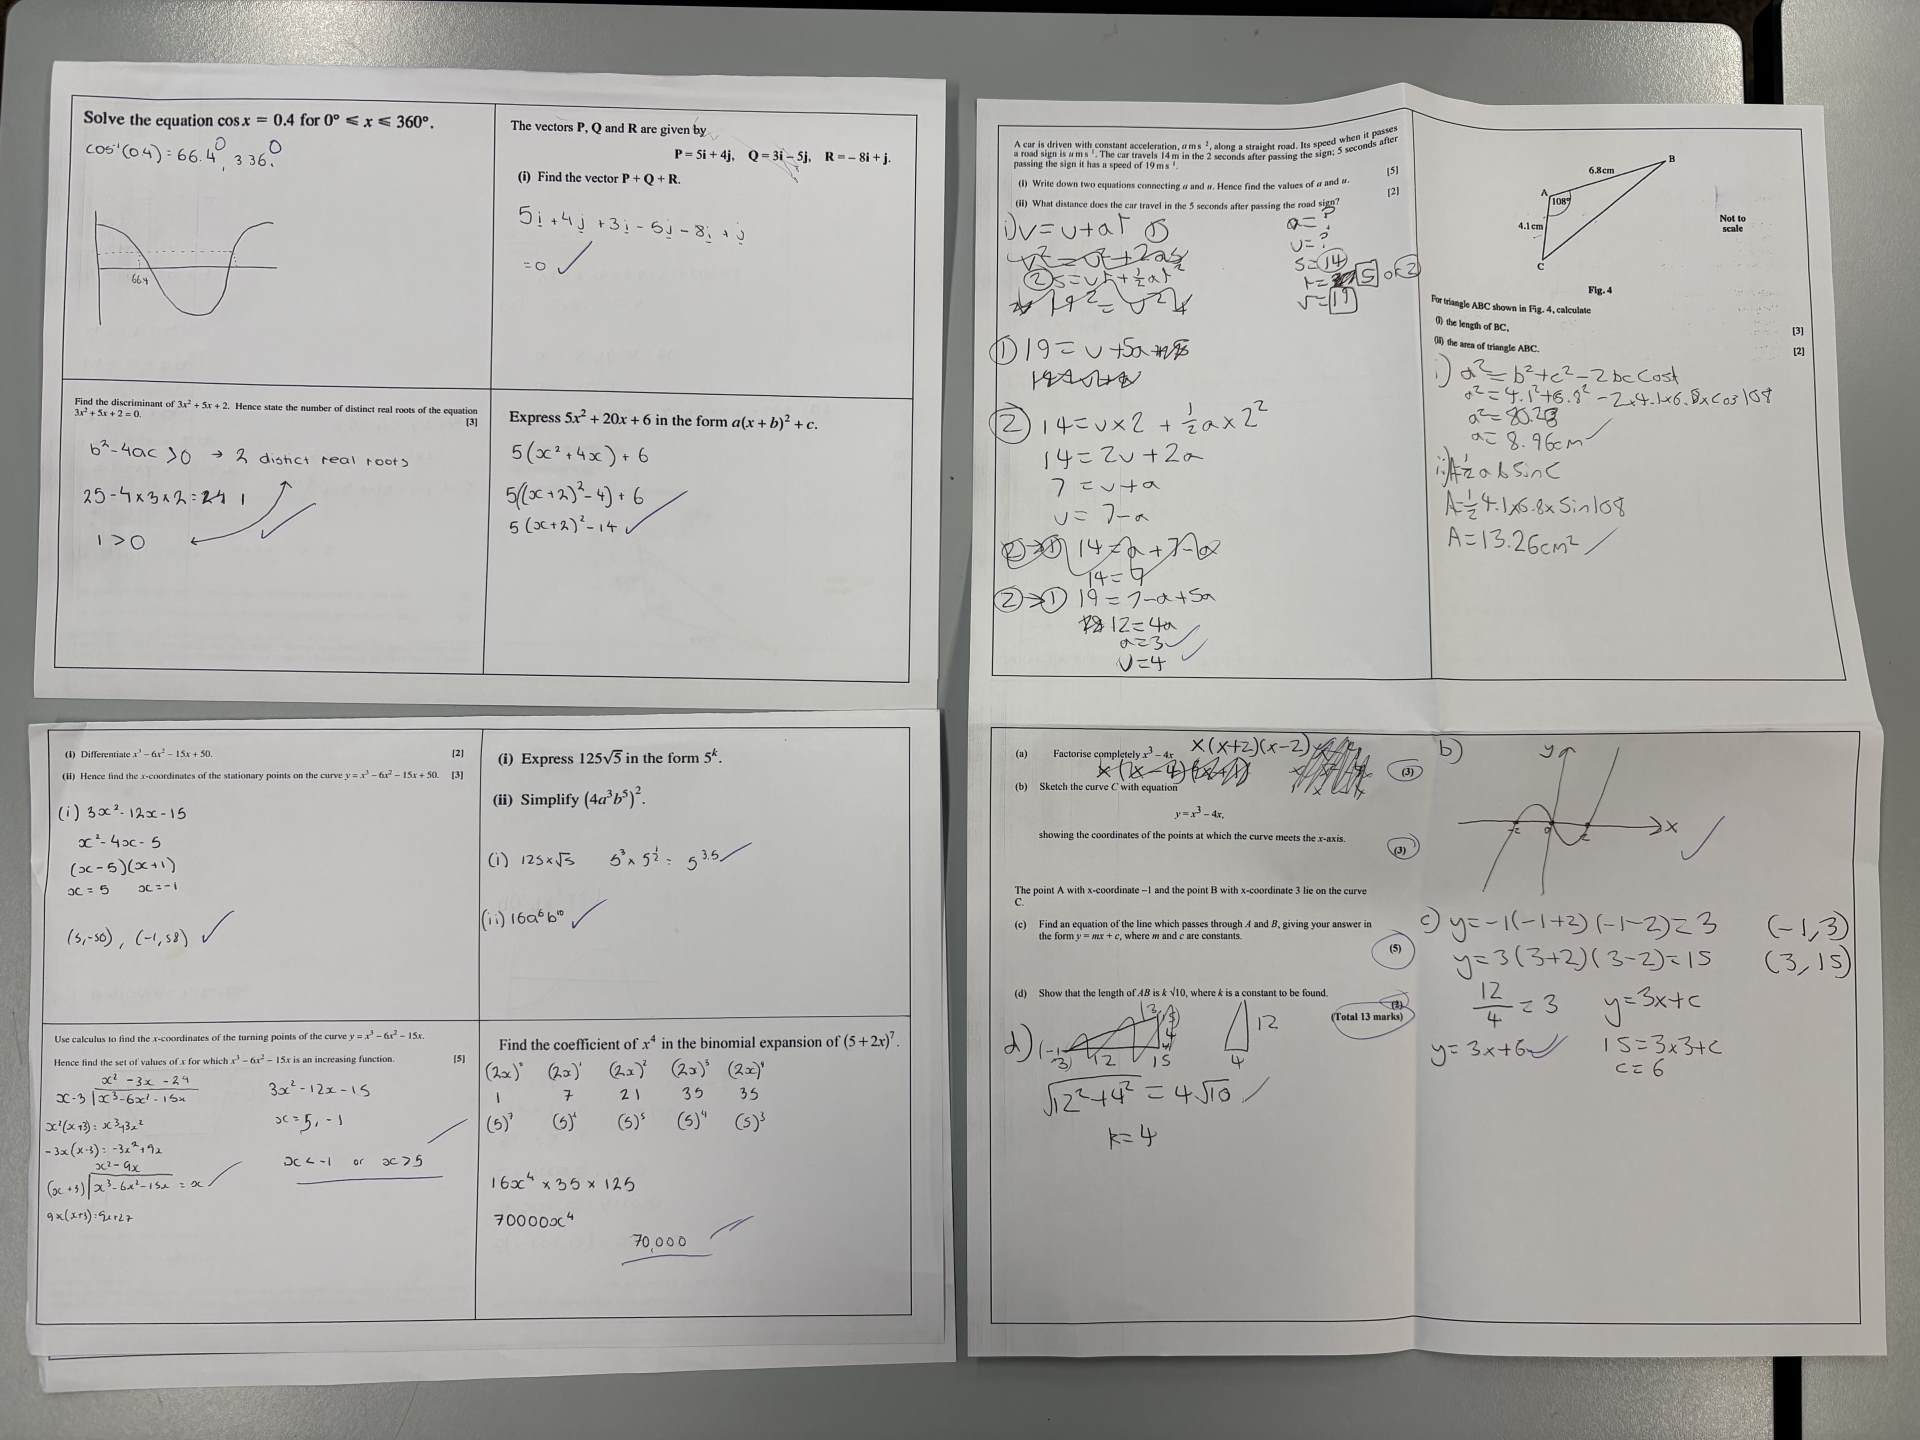 Solve the equation cos x = 0.4 for 0° ⩽ x ⩽ 360°.
cos⁻¹(0.4) = 66.4°, 336.°
66.4
The vectors P, Q and R are given by
P = 5i + 4j, Q = 3i − 5j, R = − 8i + j.
(i) Find the vector P + Q + R.
5i + 4j + 3i − 5j − 8i + j
= 0
Find the discriminant of 3x² + 5x + 2. Hence state the number of distinct real roots of the equation
3x² + 5x + 2 = 0. [3]
b² − 4ac > 0 → 2 distinct real roots
25 − 4 × 3 × 2 = 1
1 > 0
Express 5x² + 20x + 6 in the form a(x + b)² + c.
5(x² + 4x) + 6
5((x+2)² − 4) + 6
5(x+2)² − 14
(i) Differentiate x³ − 6x² − 15x + 50. [2]
(ii) Hence find the x-coordinates of the stationary points on the curve y = x³ − 6x² − 15x + 50. [3]
(i) 3x² − 12x − 15
x² − 4x − 5
(x − 5)(x + 1)
x = 5 x = −1
(5, −50), (−1, 58)
(i) Express 125√5 in the form 5ᵏ.
(ii) Simplify (4a³b⁵)².
(i) 125 × √5 5³ × 5^½ = 5^3.5
(ii) 16a⁶b¹⁰
Use calculus to find the x-coordinates of the turning points of the curve y = x³ − 6x² − 15x.
Hence find the set of values of x for which x³ − 6x² − 15x is an increasing function. [5]
x² − 3x − 24
x − 3 | x³ − 6x² − 15x
3x² − 12x − 15
x = 5, −1
−3x(x−3) = −3x² + 9x
x² − 9x
x < −1 or x > 5
(x + 3) | x³ − 6x² − 15x = x
Find the coefficient of x⁴ in the binomial expansion of (5 + 2x)⁷.
(2x)⁰ (2x)¹ (2x)² (2x)³ (2x)⁴
1 7 21 35 35
(5)⁷ (5)⁶ (5)⁵ (5)⁴ (5)³
16x⁴ × 35 × 125
70000x⁴
70,000
A car is driven with constant acceleration, a m s⁻², along a straight road. Its speed when it passes
a road sign is u m s⁻¹. The car travels 14 m in the 2 seconds after passing the sign; 5 seconds after
passing the sign it has a speed of 19 m s⁻¹.
(i) Write down two equations connecting a and u. Hence find the values of a and u. [5]
(ii) What distance does the car travel in the 5 seconds after passing the road sign? [2]
i) v = u + at ①
② s = ut + ½at²
a = ?
u = ?
s = 14
t = 5 or 2
v = 19
① 19 = u + 5a
② 14 = u × 2 + ½a × 2²
14 = 2u + 2a
7 = u + a
u = 7 − a
② → ① 14 = a + 7 − a
14 = 7
② → ① 19 = 7 − a + 5a
12 = 4a
a = 3
u = 4
B
6.8cm
A
108°
4.1cm
C
Not to
scale
Fig. 4
For triangle ABC shown in Fig. 4, calculate
(i) the length of BC, [3]
(ii) the area of triangle ABC. [2]
i) a² = b² + c² − 2bc CosA
a² = 4.1² + 6.8² − 2×4.1×6.8×cos108
a² = 80.28
a = 8.96cm
ii) A = ½ ab SinC
A = ½ 4.1×6.8×Sin108
A = 13.26cm²
(a) Factorise completely x³ − 4x x(x+2)(x−2) (3)
(b) Sketch the curve C with equation
y = x³ − 4x,
showing the coordinates of the points at which the curve meets the x-axis. (3)
b)
y
x
−2 0 2
The point A with x-coordinate −1 and the point B with x-coordinate 3 lie on the curve
C.
(c) Find an equation of the line which passes through A and B, giving your answer in
the form y = mx + c, where m and c are constants. (5)
c) y = −1(−1+2)(−1−2) = 3 (−1, 3)
y = 3(3+2)(3−2) = 15 (3, 15)
12/4 = 3 y = 3x + c
y = 3x + 6 15 = 3×3 + c
c = 6
(d) Show that the length of AB is k √10, where k is a constant to be found. (2)
(Total 13 marks)
d)
12
4
√12² + 4² = 4√10
k = 4